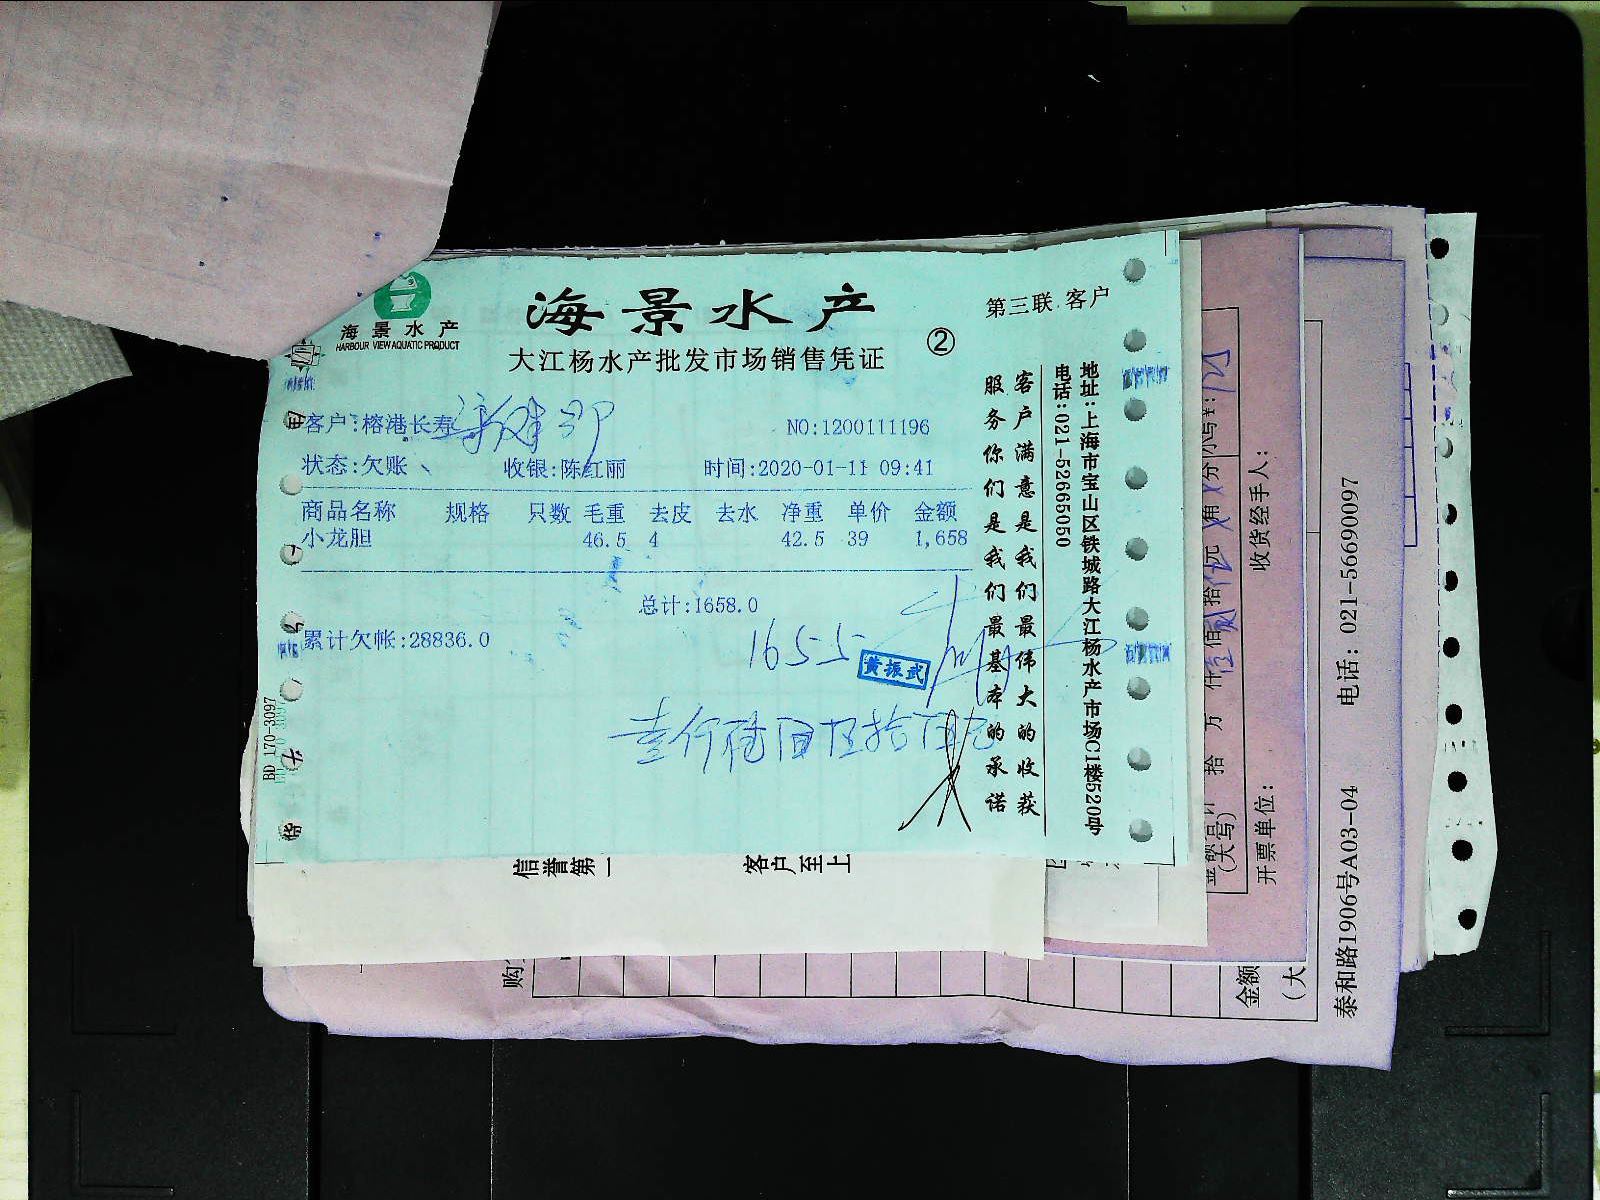 海景水产
HARBOUR VIEW AQUATIC PRODUCT
海景水产
大江杨水产批发市场销售凭证
②
第三联 客户
客户:榕港长寿
NO:1200111196
状态:欠账
收银:陈红丽
时间:2020-01-11 09:41
商品名称 规格 只数 毛重 去皮 去水 净重 单价 金额
小龙胆 46.5 4 42.5 39 1,658
总计:1658.0
累计欠帐:28836.0
1655
黄振武
壹仟陆佰伍拾伍元
客户满意是我们最伟大的收获
服务你们是我们最基本的承诺
地址:上海市宝山区铁城路大江杨水产市场C1楼520号
电话:021-52665050
BD 170-3097
信誉第一
客户至上
拾 万 仟 佰 拾 元 角 分
(大写)
开票单位:
收货经手人:
泰和路1906号A03-04 电话: 021-56690097
金额
(大
购